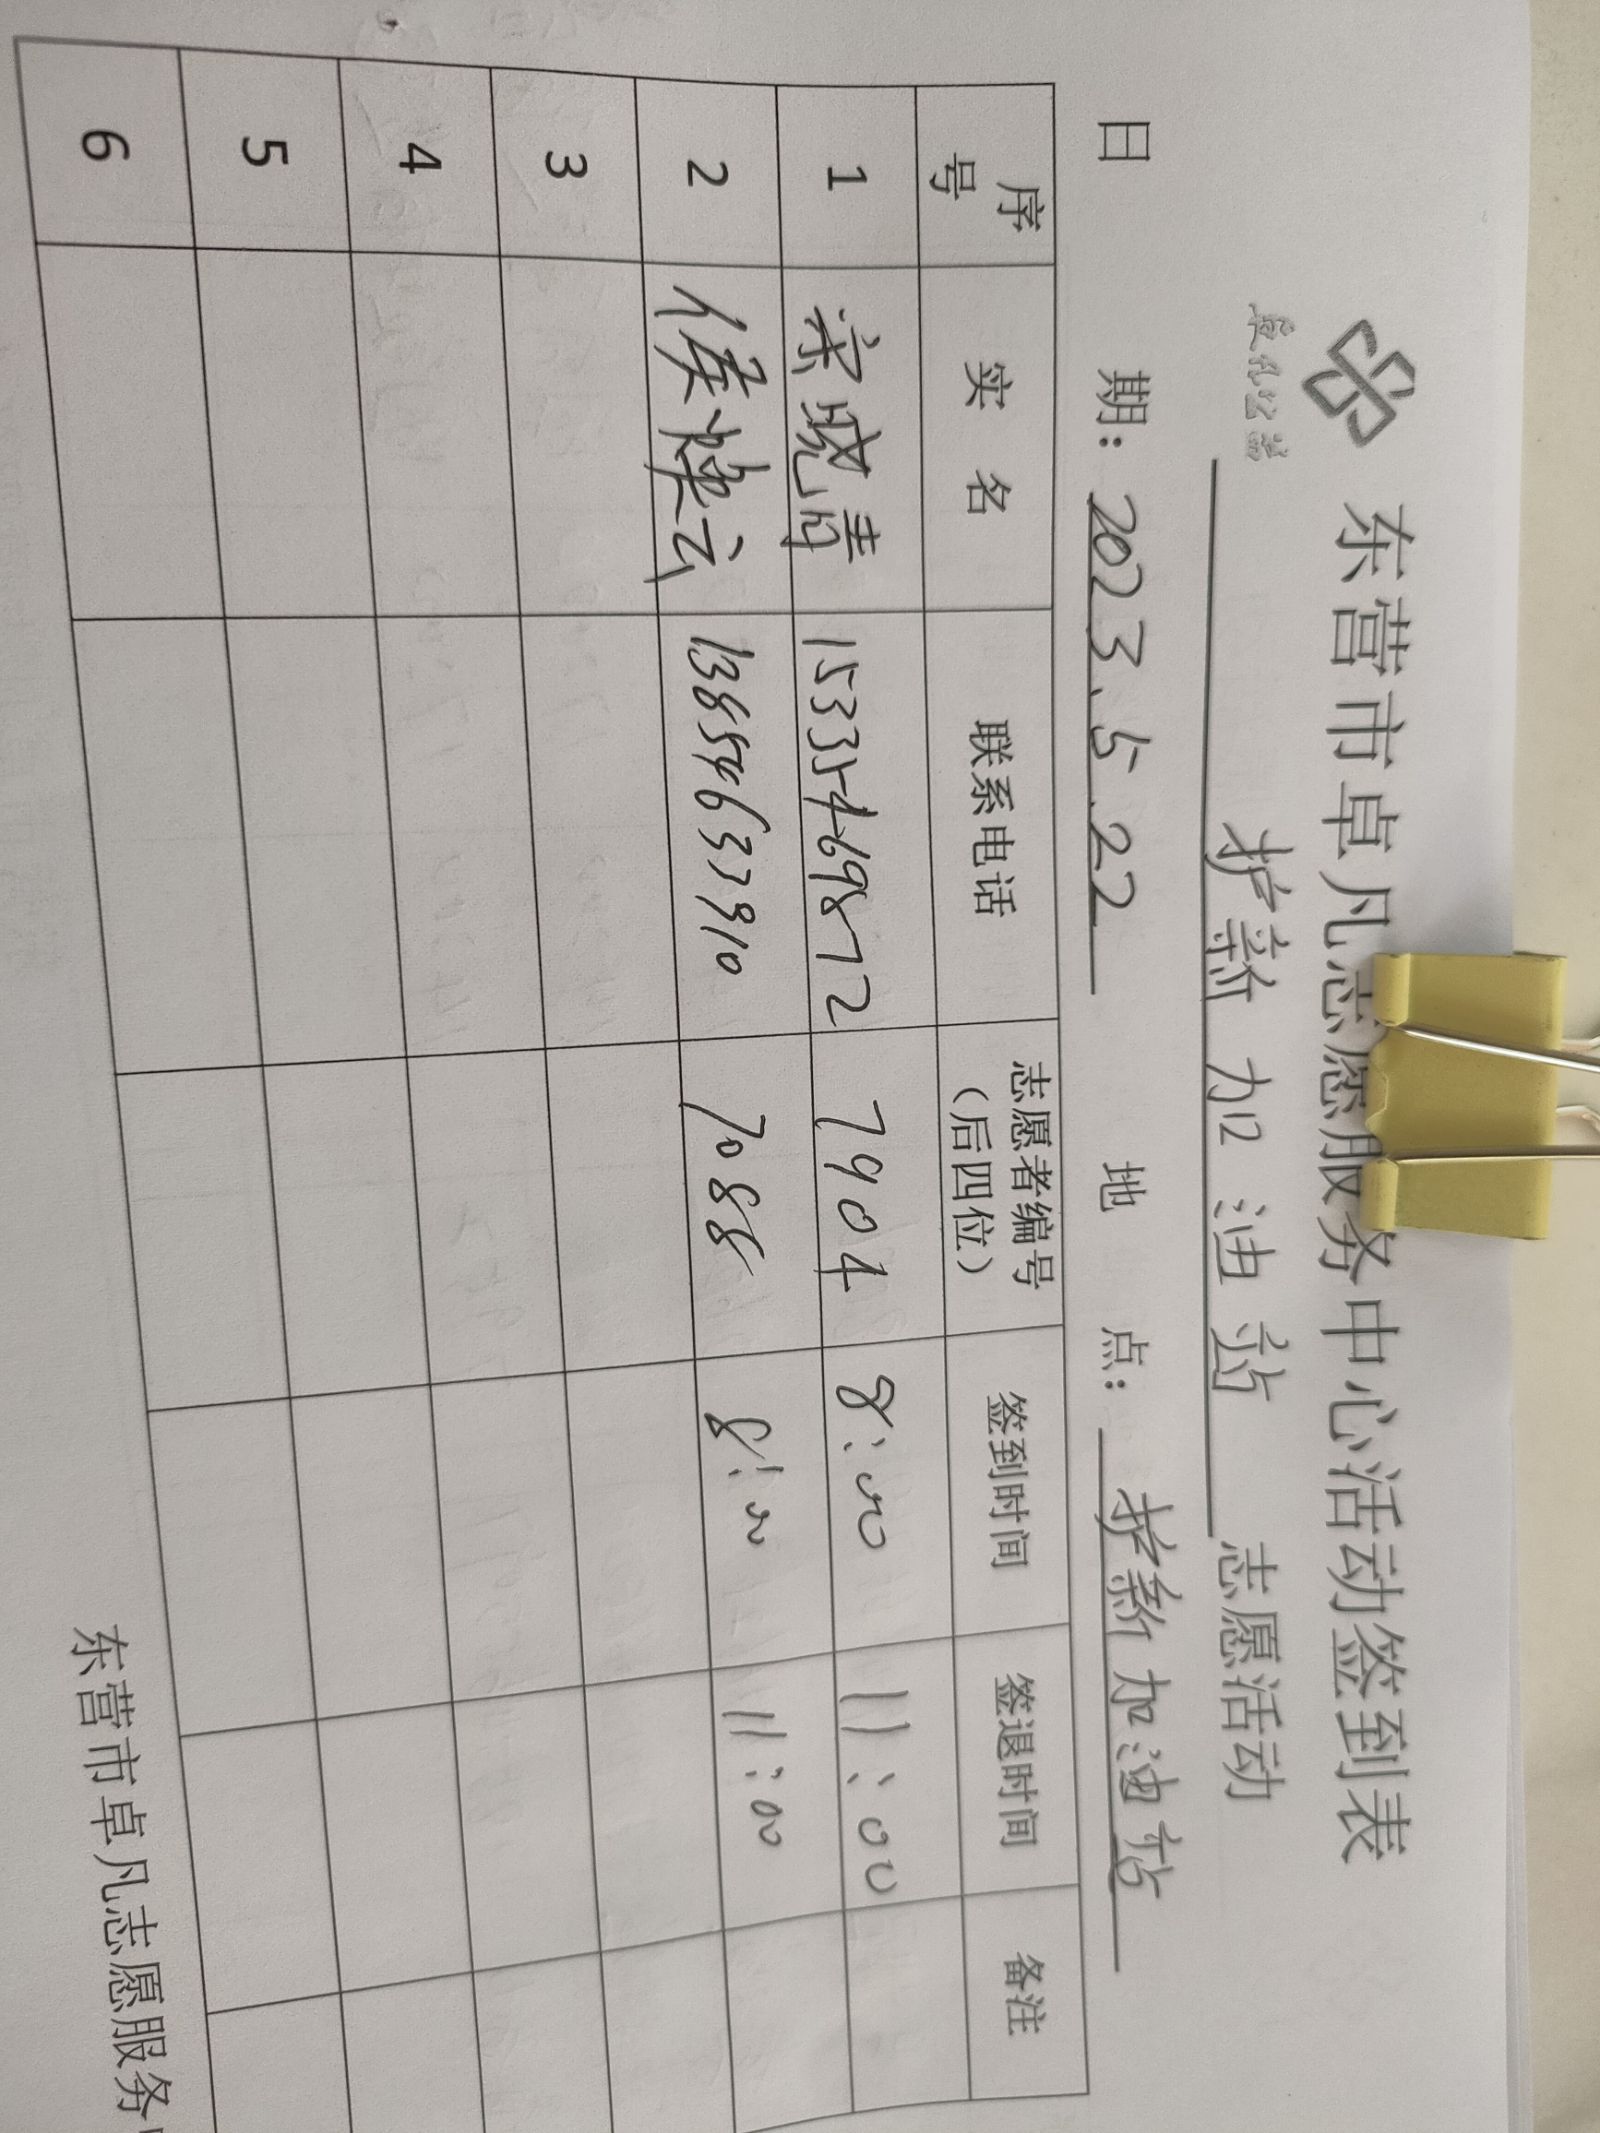 东营市卓凡志愿服务中心活动签到表
护薪加油站 志愿活动
日 期：2023.5.22 地 点：护薪加油站
序号 实 名 联系电话 志愿者编号（后四位） 签到时间 签退时间 备注
1 宋晓青 15335469872 7904 8:00 11:00
2 侯 云 13854637910 7088 8:00 11:00
3
4
5
6
东营市卓凡志愿服务